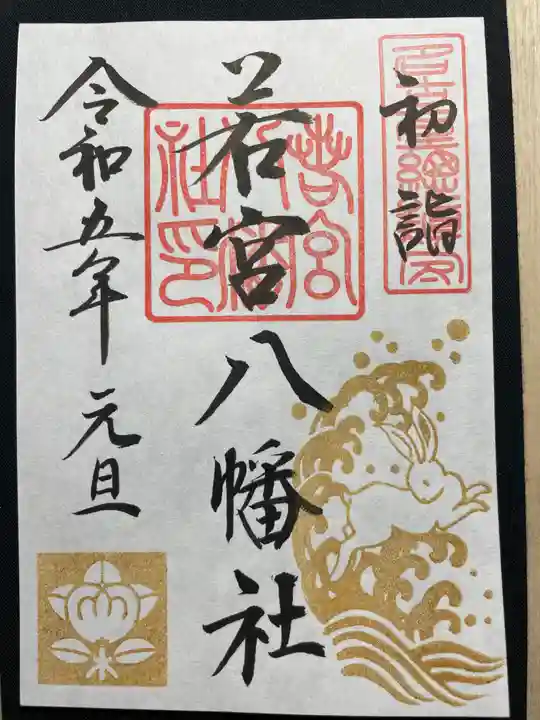 初詣
若宮八幡社
若宮八幡社印
令和五年元旦